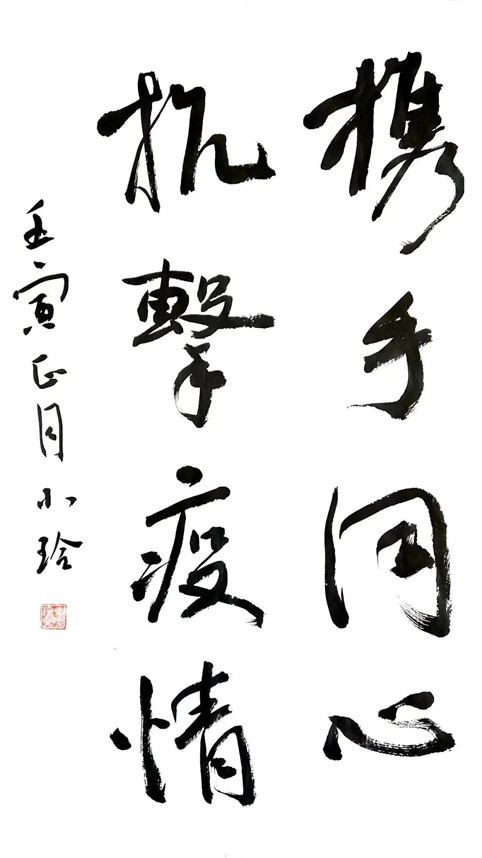 携手同心
抗擊疫情
壬寅正月小玲